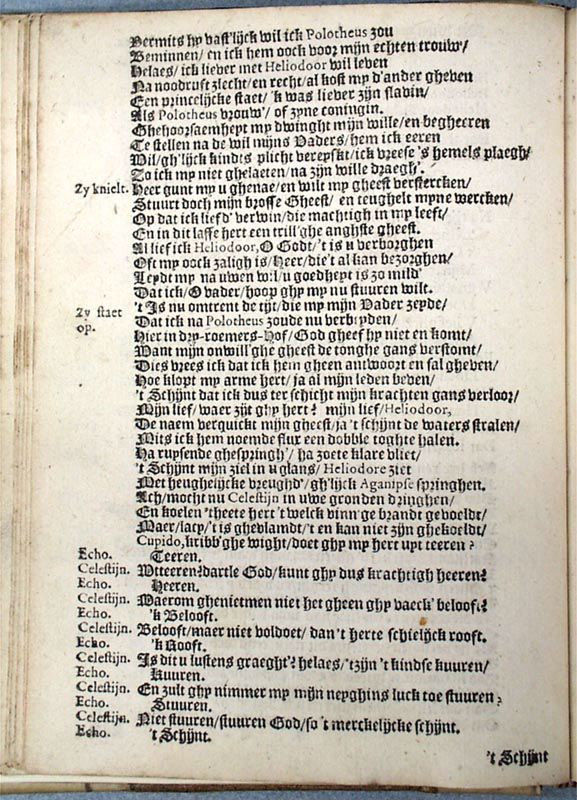 Vermits hy vast'lijck wil ick Polotheus zou
Beminnen/ en ick hem oock voor mijn echten trouw'/
Helaes/ ick liever met Heliodoor wil leven
Na nootdruft slecht/ en recht/ al kost my d'ander gheven
Een princelijcke staet/ 'k was liever zijn slavin/
Als Polotheus vrouw'/ of zyne coningin.
Ghehoorsaemheyt my dwinght mijn wille/ en begheeren
Te stellen na de wil mijns Vaders/ hem ick eeren
Wil/ gh'lijck kindts plicht vereyscht/ ick vreese 's hemels plaegh/
Zo ick my niet ghelaeten/ na zijn wille draegh'.
Zy knielt. Heer gunt my u ghenae/ en wilt my gheest verstercken/
Stuurt doch mijn brosse Gheest/ en teughelt myne wercken/
Op dat ick liefd' verwin/ die machtigh in my leeft/
En in dit lasse hert een trill'ghe anghste gheest.
Al lief ick Heliodoor, O Godt/ 't is u verborghen
Oft my oock zaligh is/ Heer/ die't al kan bezorghen/
Leydt my na uwen wil/ u goedheyt is zo mild'
Dat ick/ O vader/ hoop ghy my nu stuuren wilt.
't Is nu omtrent de tijt/ die my mijn Vader zeyde/
Zy staet op. Dat ick na Polotheus zoude nu verbeyden/
Hier in dry-roemers-Hof/ God gheef hy niet en komt/
Want mijn onwill'ghe gheest de tonghe gans verstomt/
Dies vrees ick dat ick hem gheen antwoort en sal gheven/
Hoe klopt my arme hert/ ja al mijn leden beven/
't Schijnt dat ick dus ter schicht mijn krachten gans verloor/
Mijn lief/ waer zijt ghy hert? mijn lief/ Heliodoor,
De naem verquickt mijn gheest/ ja 't schijnt de waters stralen/
Mits ick hem noemde flux een dobble toghte halen.
Ha ruysende ghespringh'/ ha zoete klare vliet/
't Schijnt mijn ziel in u glans/ Heliodore ziet
Met heughelijcke vreughd'/ gh'lijck Aganipse springhen.
Ach/ mocht nu Celestijn in uwe gronden dringhen/
En koelen 'theete hert 't welck vinn'ge brandt gevoeldt/
Maer/ lacy/ 't is ghevlamdt/ 't en kan niet zijn ghekoeldt/
Cupido, kribb'ghe wight/ doet ghy my hert uyt teeren?
Echo. Teeren.
Celestijn. Wtteeren? dartle God/ kunt ghy dus krachtigh heeren?
Echo. Heeren.
Celestijn. Waerom ghenietmen niet het gheen ghy vaeck' belooft?
Echo. 'k Belooft.
Celestijn. Belooft/ maer niet voldoet/ dan 't herte schielijck rooft.
Echo. 'k Rooft.
Celestijn. Is dit u lustens graeght'? helaes/ 'tzijn 't kindse kuuren/
Echo. Kuuren.
Celestijn. En zult ghy nimmer my mijn neyghins luck toe stuuren?
Echo. Stuuren.
Celestijn. Niet stuuren/ stuuren God/ so 't merckelijcke schijnt.
Echo. 't Schijnt.
't Schijnt